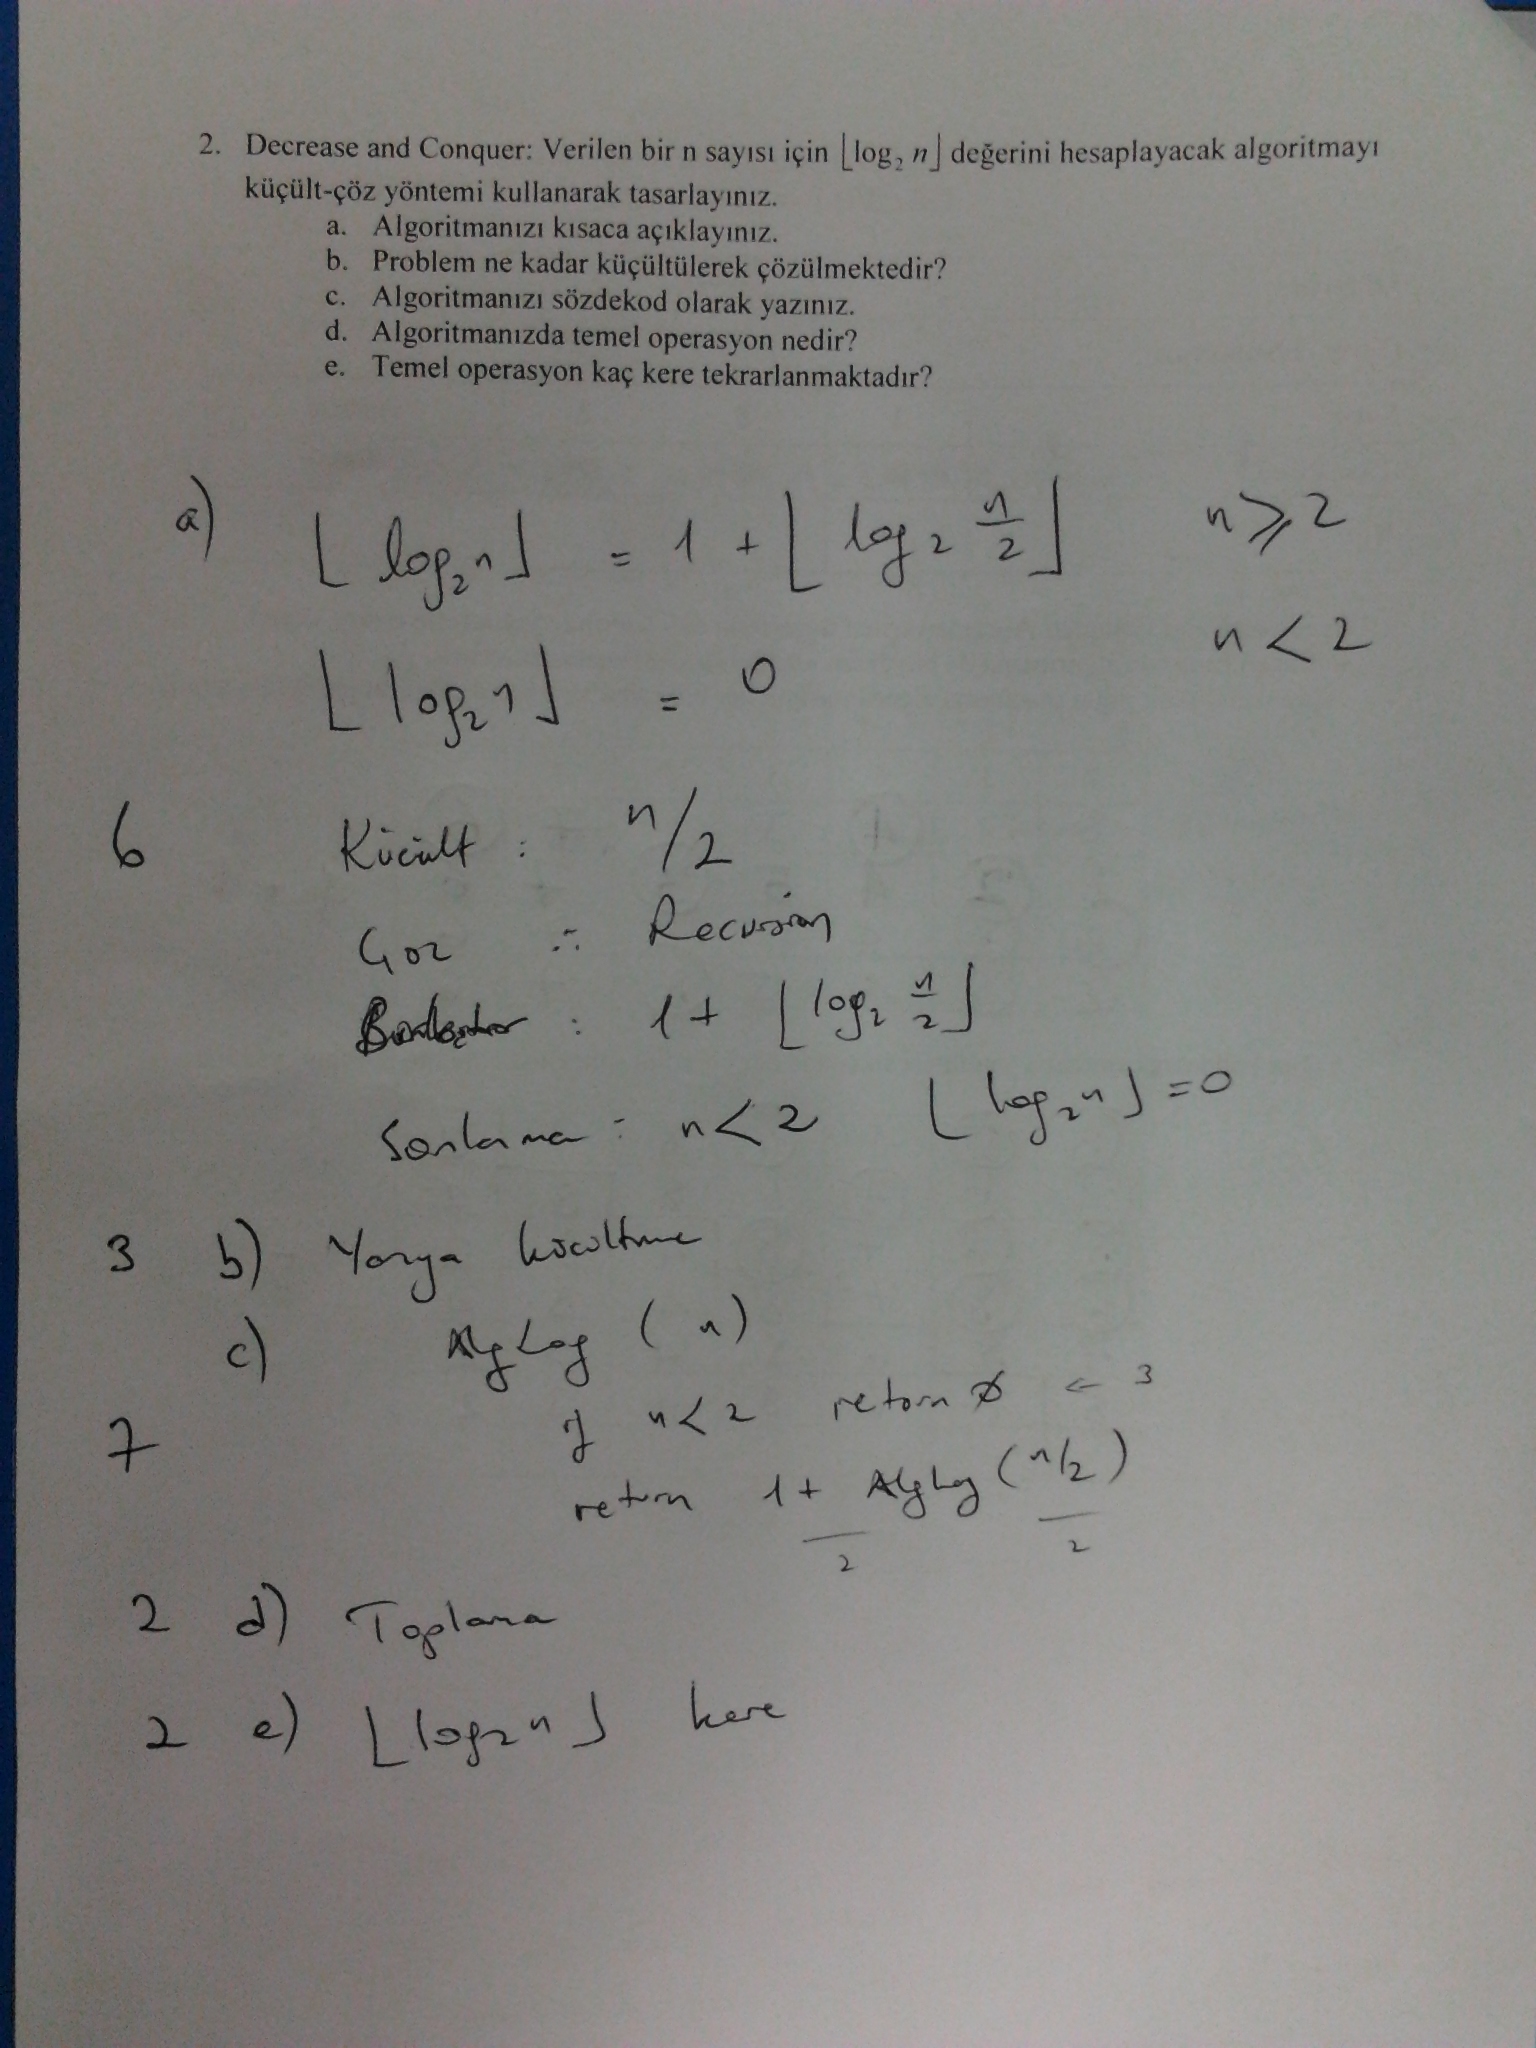 2. Decrease and Conquer: Verilen bir n sayısı için ⌊log₂ n⌋ değerini hesaplayacak algoritmayı
küçült-çöz yöntemi kullanarak tasarlayınız.
a. Algoritmanızı kısaca açıklayınız.
b. Problem ne kadar küçültülerek çözülmektedir?
c. Algoritmanızı sözdekod olarak yazınız.
d. Algoritmanızda temel operasyon nedir?
e. Temel operasyon kaç kere tekrarlanmaktadır?
a) ⌊log₂n⌋ = 1 + ⌊log₂ n/2⌋ n ⩾ 2
⌊log₂n⌋ = 0 n < 2
6 Kücült : n/2
Çöz : Recursion
Birleştir : 1 + ⌊log₂ n/2⌋
Sonlanma : n < 2 ⌊log₂n⌋ = 0
3 b) Yarıya kücültme
c) AlgLog (n)
7 if n < 2 return 0 ← 3
return 1 + AlgLog (n/2)
2 2
2 d) Toplama
2 e) ⌊log₂n⌋ kere